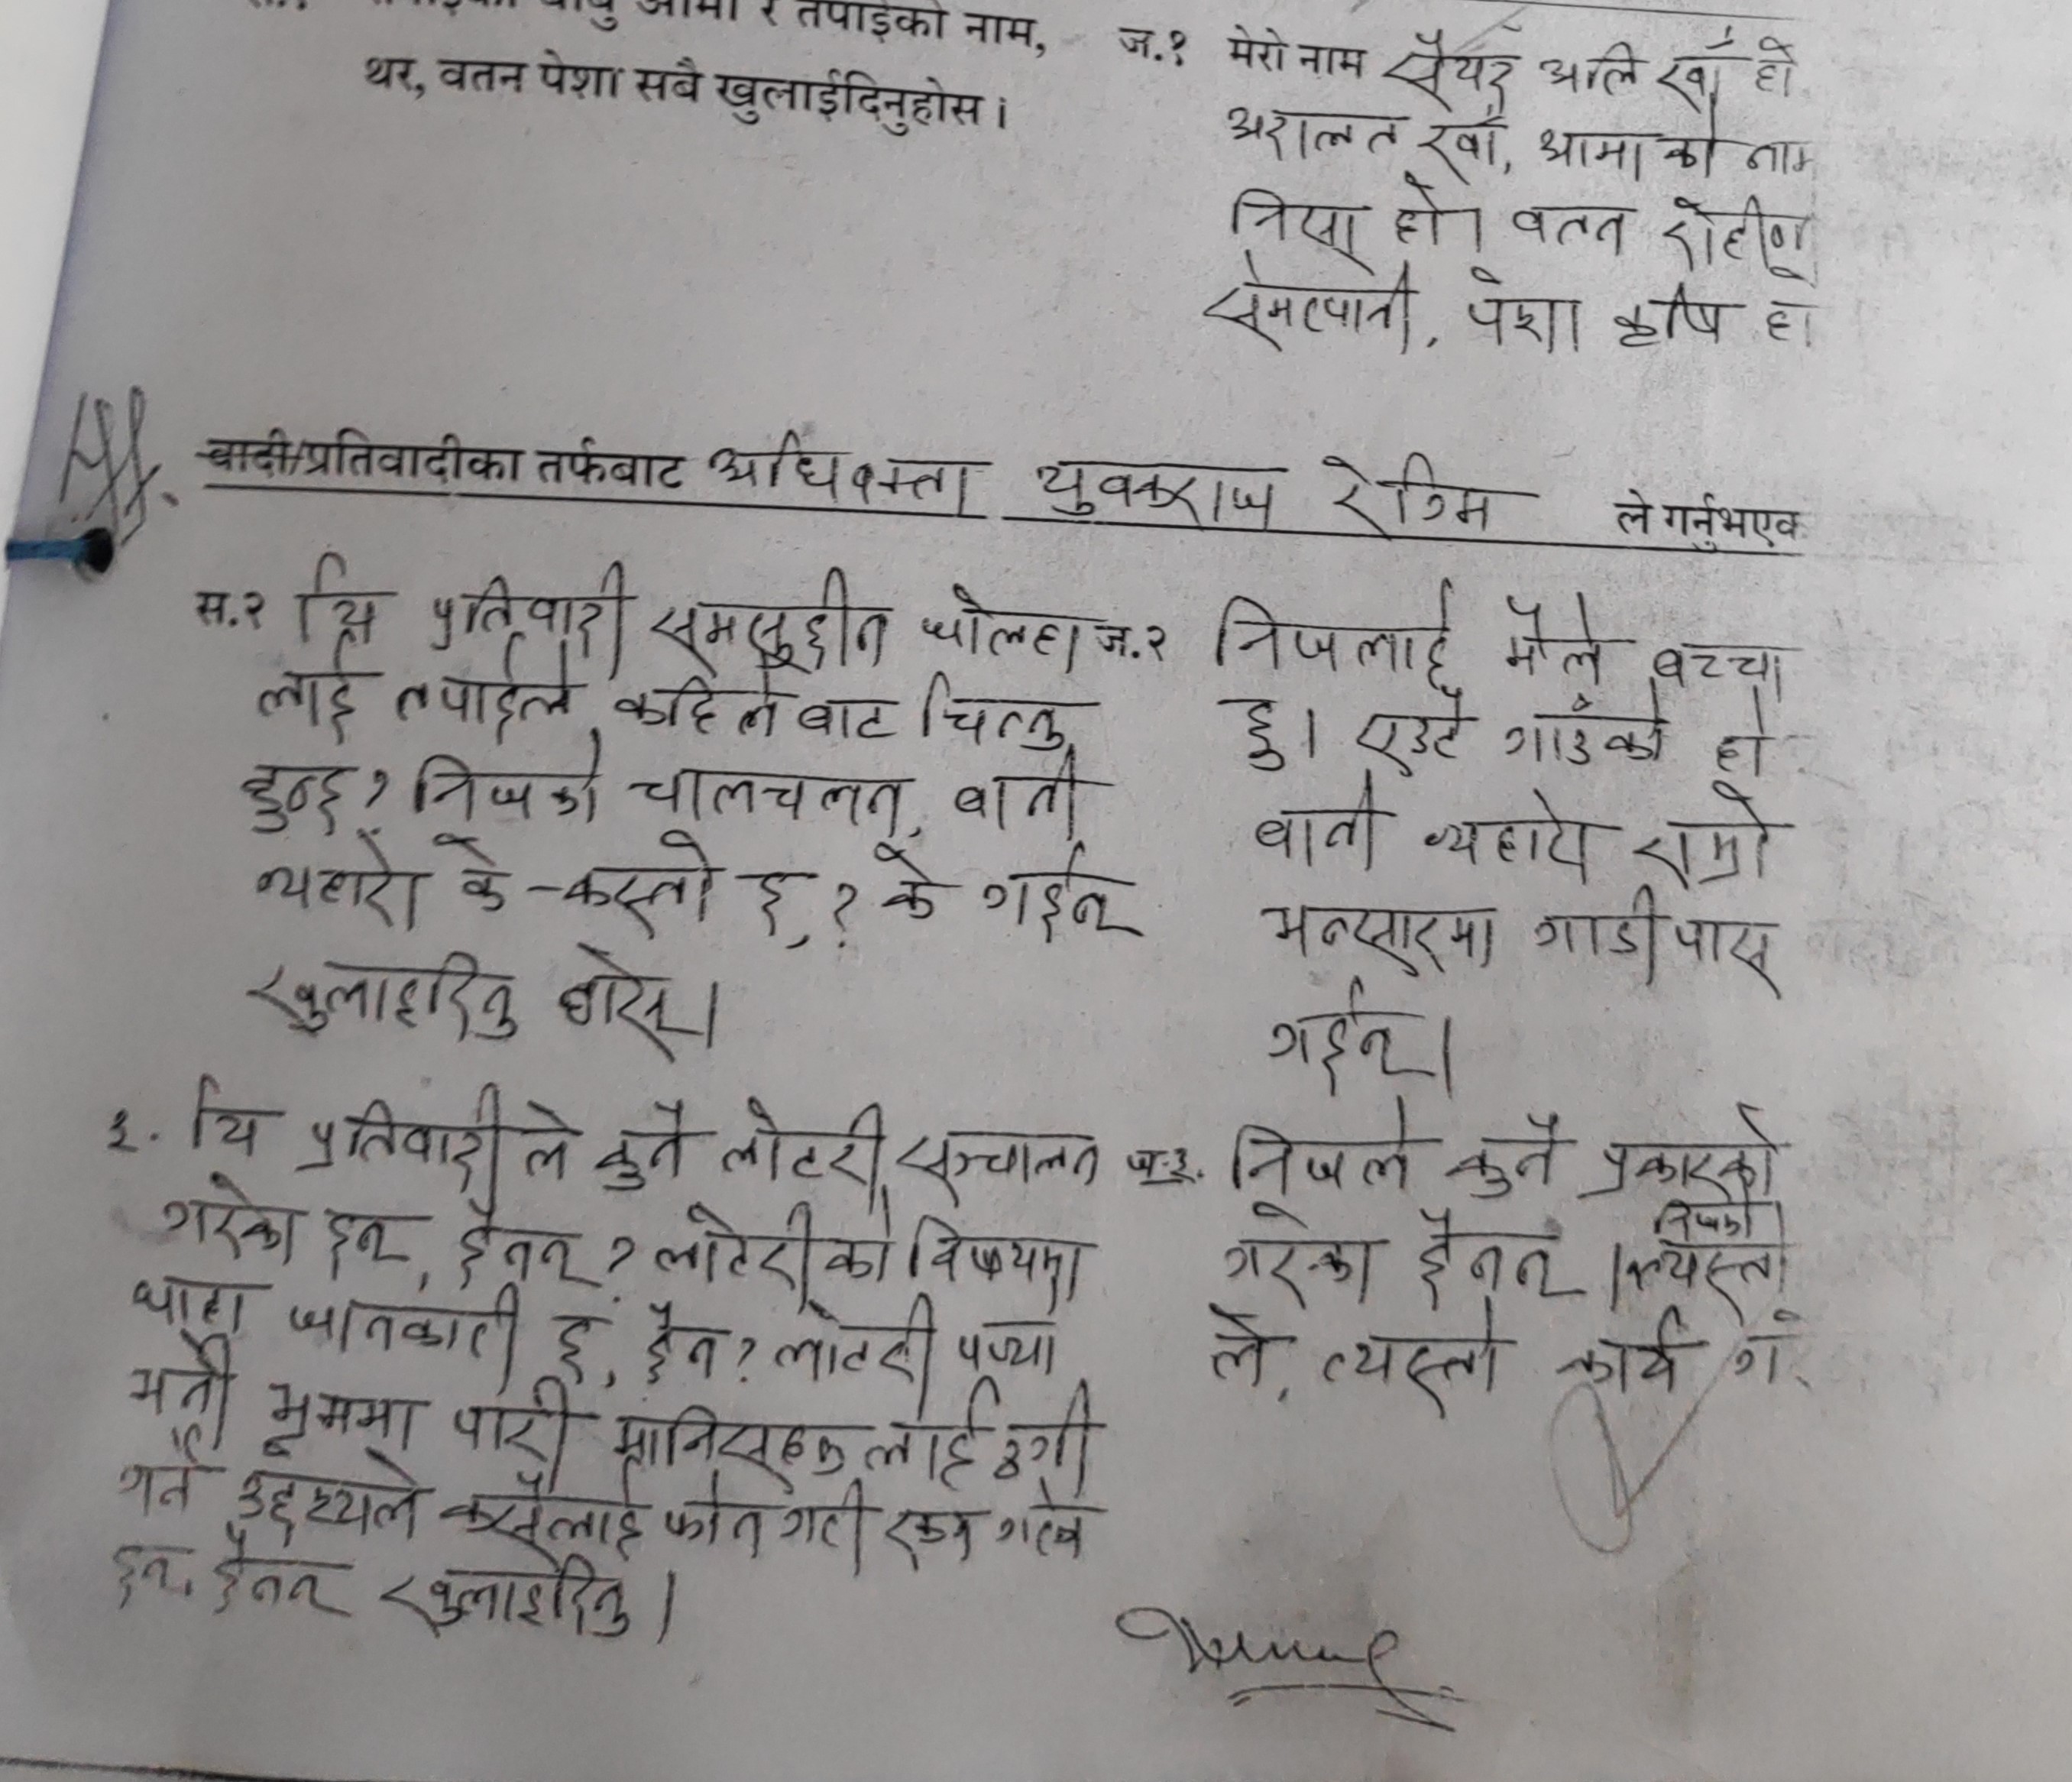 तपाईको बाबु आमा र तपाईको नाम,
थर, वतन पेशा सबै खुलाईदिनुहोस।
ज.१ मेरो नाम सैयद अलि खाँ हो
अदालत खाँ, आमा को नाम
निसा हो। वतन रोहीणी
सेमरपानी, पेशा कृषि हो
वादी/प्रतिवादीका तर्फबाट अधिवक्ता युवकराज रेग्मि ले गर्नुभएक
स.२ यि प्रतिवादी समसुद्दीन जोलहा
लाई तपाईले कहिले बाट चिन्नु
हुन्छ? निजको चालचलन, वानी
व्यहारो के-कस्तो छ,? के गर्छन
खुलाइदिनु होस्।
ज.२ निजलाई मैले बच्चा
छु। एउटै गाउँको हो
वानी व्यहारो राम्रो
भन्सारमा गाडी पास
गर्छन्।
३. यि प्रतिवादी ले कुनै लोटरी सञ्चालन
गरेका छन्, छैनन्? लोटेरीको विषयमा
थाहा जानकारी छ, छैन? लोटरी पर्‍यो
भनी भ्रममा पारी मानिसहरु लाई ठगी
गर्ने उद्देश्यले कसैलाई फोन गरी रकम
छन्, छैनन् खुलाइदिनु।
ज.३. निजले कुनै प्रकारको
निजको
गरेका छैनन् । त्यस्तो
ले, त्यस्तो कार्य